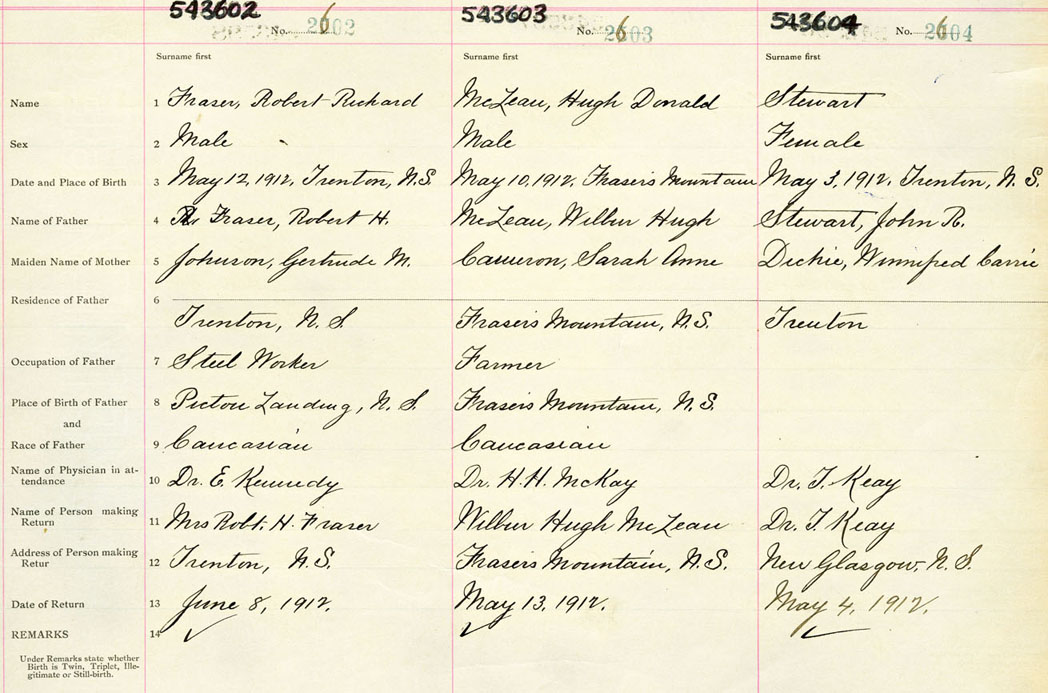 543602 543603 543604
No. 2602 No. 2603 No. 2604
Surname first Surname first Surname first
Name 1 Fraser, Robert Richard McLean, Hugh Donald Stewart
Sex 2 Male Male Female
Date and Place of Birth 3 May 12, 1912. Trenton, N.S. May 10, 1912. Frasers Mountain May 3, 1912. Trenton, N.S.
Name of Father 4 Fraser, Robert H. McLean, Wilbur Hugh Stewart, John R.
Maiden Name of Mother 5 Johnson, Gertrude M. Cameron, Sarah Anne Dickie, Winnifred Carrie
Residence of Father 6
Trenton, N.S. Frasers Mountain, N.S. Trenton
Occupation of Father 7 Steel Worker Farmer
Place of Birth of Father 8 Pictou Landing, N.S. Frasers Mountain, N.S.
and
Race of Father 9 Caucasian Caucasian
Name of Physician in at-
tendance 10 Dr. E. Kennedy Dr. H.H. McKay Dr. T. Keay
Name of Person making
Return 11 Mrs Robt. H. Fraser Wilbur Hugh McLean Dr. T. Keay
Address of Person making
Retur 12 Trenton, N.S. Frasers Mountain, N.S. New Glasgow, N.S.
Date of Return 13 June 8, 1912. May 13, 1912. May 4, 1912.
REMARKS 14
Under Remarks state whether
Birth is Twin, Triplet, Ille-
gitimate or Still-birth.